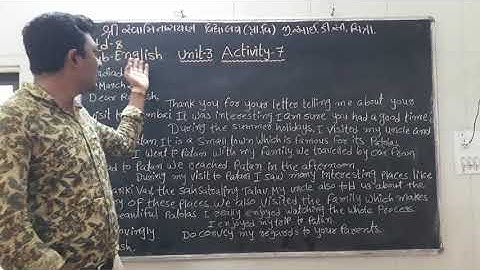 શ્રી સ્વામિનારાયણ વિદ્યાલય
d-8
English Unit-3 Activity-7
March
Dear
Thank you for your letter telling me about your
visit to It was interesting I am sure you had a good time
During the summer holidays, I visited my uncle and
It is a small town which is famous for its Patolas
I went to Patan with my family we travelled by car From
to Patan we reached Patan in the afternoon
During my visit to Patan I saw many interesting places like
Vav, the Talav. My uncle also told us about the
of these places. We also visited the family which makes
beautiful Patolas. I really enjoyed watching the whole process
I enjoyed my to Patan.
lovingly Do convey my regards to your Parents.